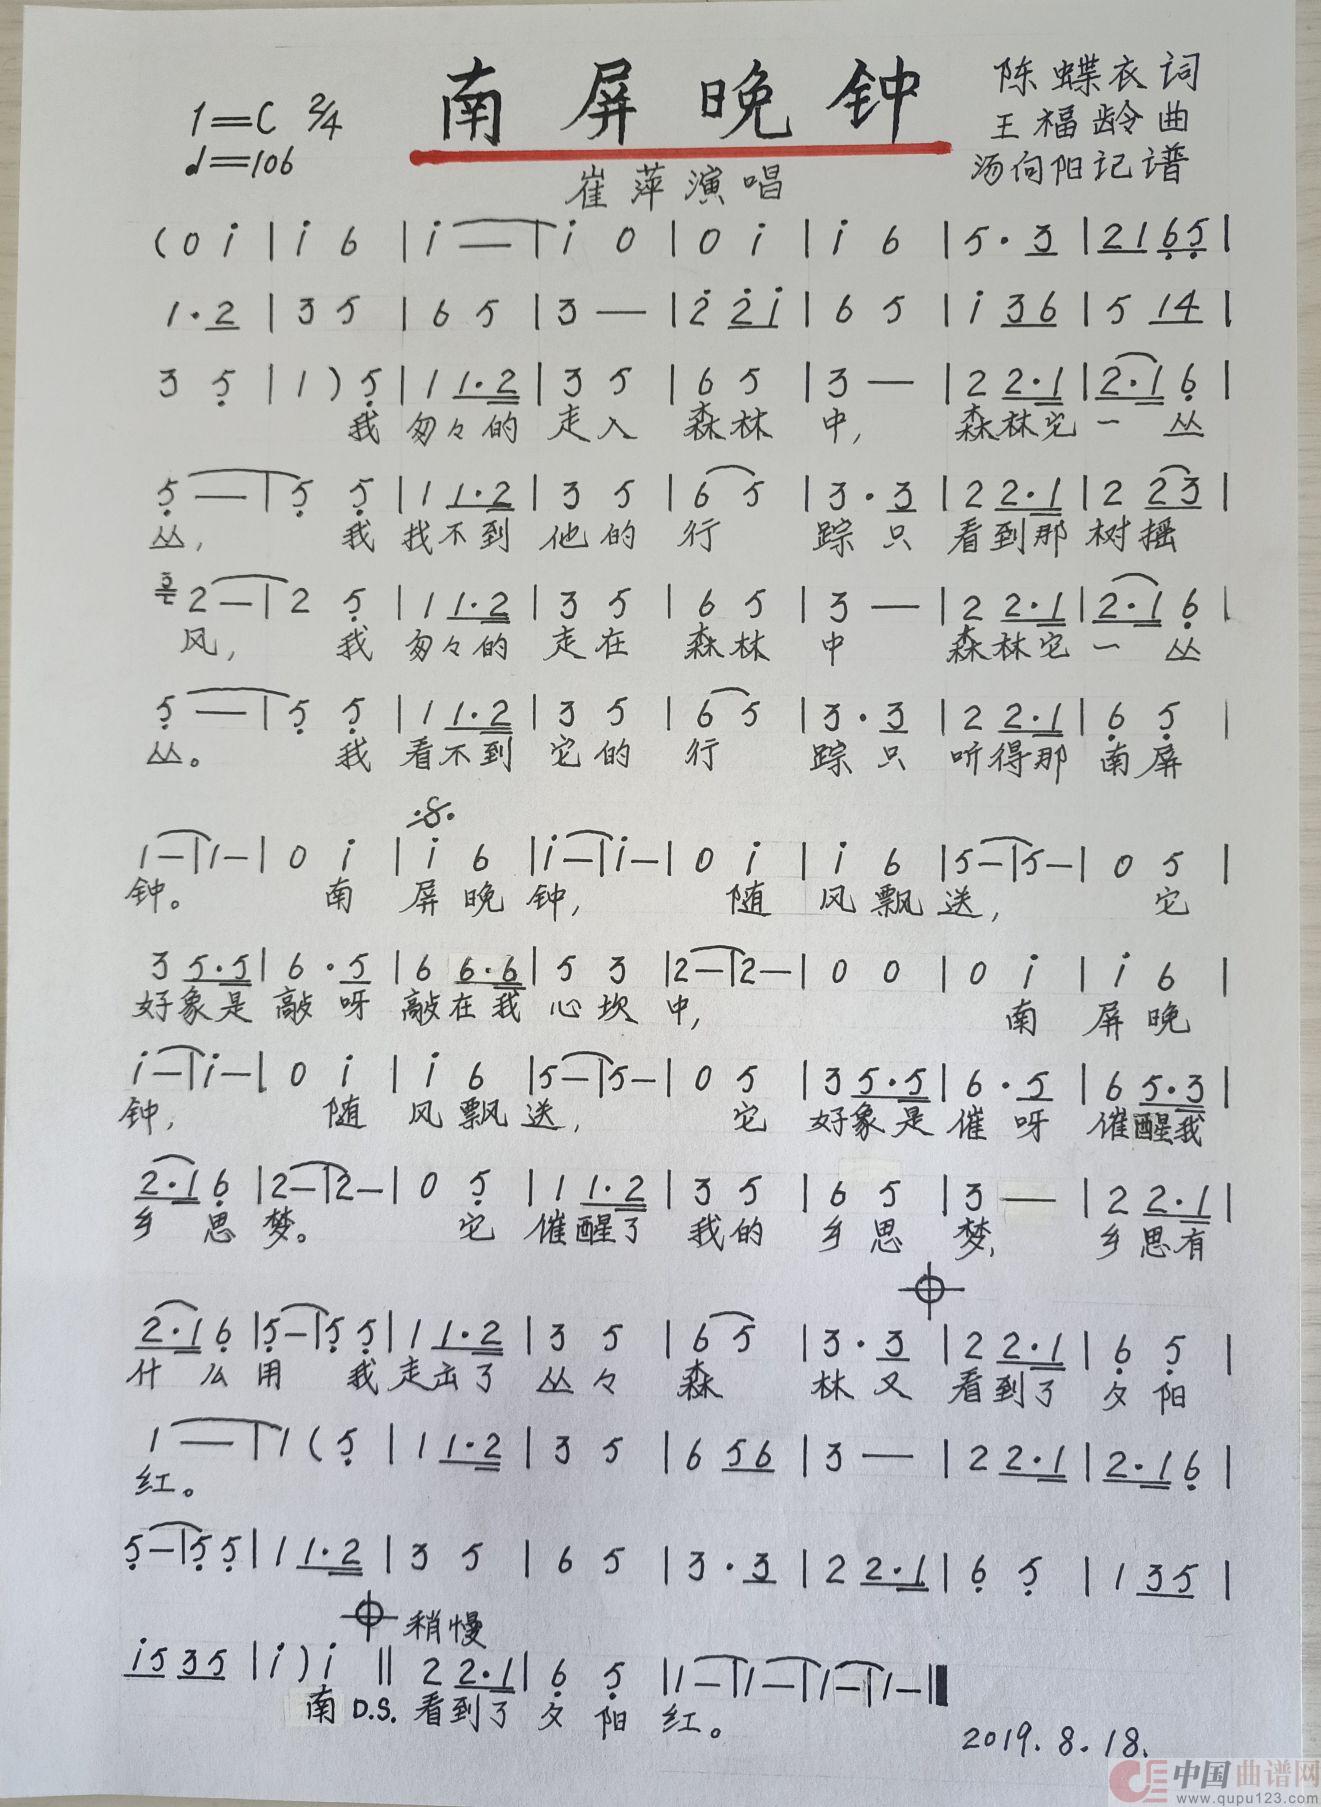 南屏晚钟
1=C 2/4
♩=106
陈蝶衣词
王福龄曲
汤向阳记谱
崔萍演唱
(0 i | i 6 | i — | i 0 | 0 i | i 6 | 5 · 3 | 2 1 6 5 |
1 · 2 | 3 5 | 6 5 | 3 — | 2 2 i | 6 5 | i 3 6 | 5 1 4 |
3 5 | 1 ) 5 | 1 1 · 2 | 3 5 | 6 5 | 3 — | 2 2 · 1 | 2 · 1 6 |
我 匆々的 走入 森林 中, 森林它一 丛
5 — | 5 5 | 1 1 · 2 | 3 5 | 6 5 | 3 · 3 | 2 2 · 1 | 2 2 3 |
丛, 我 找不到 他的 行 踪只 看到那 树摇
3 2 — | 2 5 | 1 1 · 2 | 3 5 | 6 5 | 3 — | 2 2 · 1 | 2 · 1 6 |
风, 我 匆々的 走在 森林 中 森林它一 丛
5 — | 5 5 | 1 1 · 2 | 3 5 | 6 5 | 3 · 3 | 2 2 · 1 | 6 5 |
丛。 我 看不到 它的 行 踪只 听得那 南屏
1 — | 1 — | 0 i | i 6 | i — | i — | 0 i | i 6 | 5 — | 5 — | 0 5 |
钟。 南 屏晚 钟, 随 风飘 送, 它
3 5 · 5 | 6 · 5 | 6 6 · 6 | 5 3 | 2 — | 2 — | 0 0 | 0 i | i 6 |
好象是 敲呀 敲在我 心坎 中, 南 屏晚
i — | i — | 0 i | i 6 | 5 — | 5 — | 0 5 | 3 5 · 5 | 6 · 5 | 6 5 · 3 |
钟, 随 风飘 送, 它 好象是 催呀 催醒我
2 · 1 6 | 2 — | 2 — | 0 5 | 1 1 · 2 | 3 5 | 6 5 | 3 — | 2 2 · 1 |
乡 思 梦。 它 催醒了 我的 乡思 梦, 乡思有
2 · 1 6 | 5 — | 5 5 | 1 1 · 2 | 3 5 | 6 5 | 3 · 3 | 2 2 · 1 | 6 5 |
什么用 我 走出了 丛々 森 林又 看到了 夕阳
1 — | 1 ( 5 | 1 1 · 2 | 3 5 | 6 5 6 | 3 — | 2 2 · 1 | 2 · 1 6 |
红。
5 — | 5 5 | 1 1 · 2 | 3 5 | 6 5 | 3 · 3 | 2 2 · 1 | 6 5 | 1 3 5 |
稍慢
i 5 3 5 | i ) i || 2 2 · 1 | 6 5 | 1 — | 1 — | 1 — | 1 — ||
南 D.S. 看到了 夕 阳 红。
2019.8.18.
中国曲谱网
www.qupu123.com